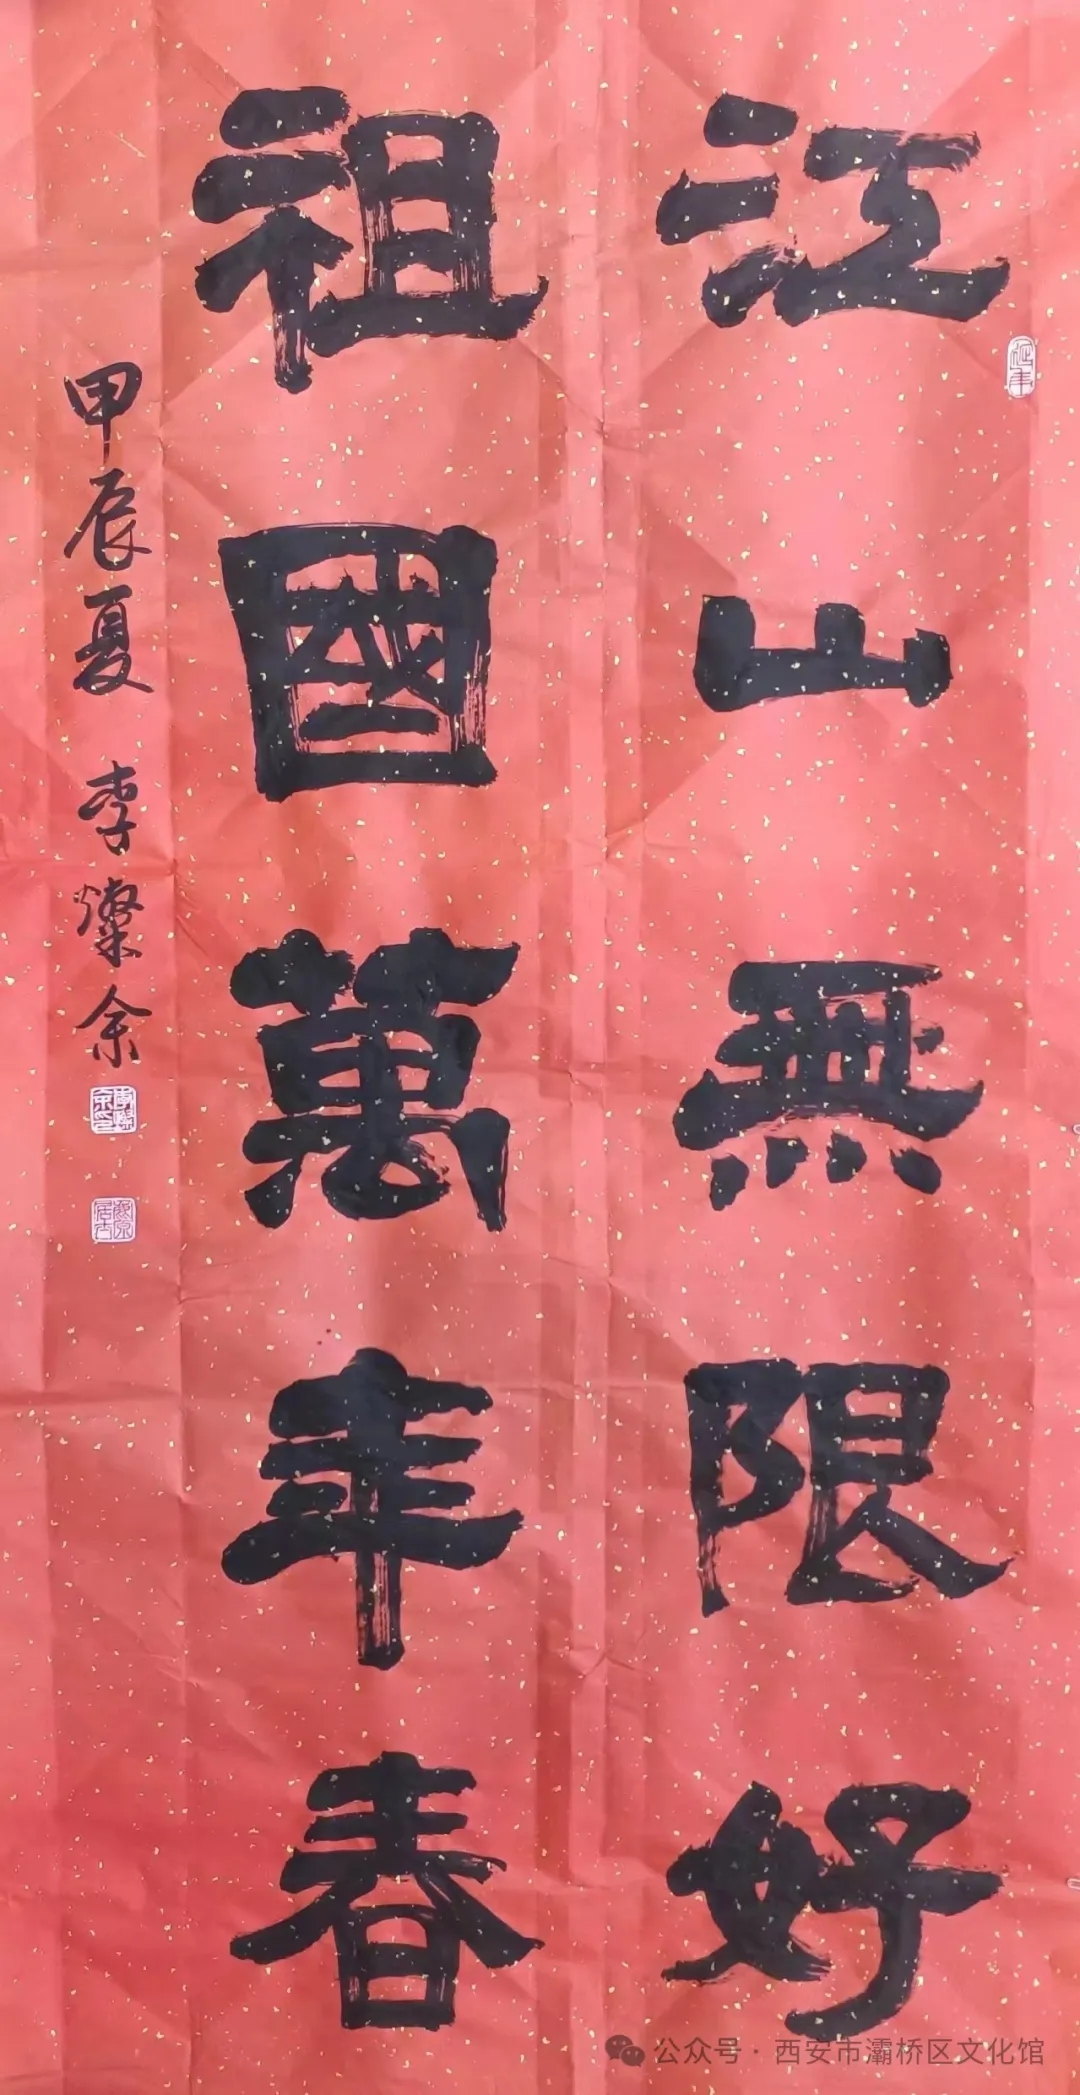 江山無限好
祖國萬年春
甲辰夏 李燦余
延年
公众号·西安市灞桥区文化馆